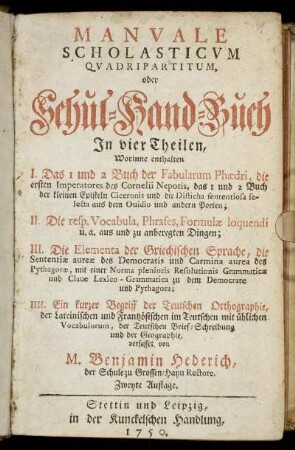 MANVALE
SCHOLASTICVM
QVADRIPARTITUM,
oder
Schul-Hand-Buch
In vier Theilen,
Worinne enthalten
I. Das 1 und 2 Buch der Fabularum Phædri, die
ersten Imperatores des Cornelii Nepotis, das 1 und 2 Buch
der kleinen Episteln Ciceronis und die Disticha sententiosa se-
lecta aus dem Ovidio und andern Poeten;
II. Die resp. Vocabula, Phrases, Formulæ loquendi
u. a. aus und zu anberegten Dingen;
III. Die Elementa der Griechischen Sprache, die
Sententiæ aureæ des Democratis und Carmina aurea des
Pythagoræ, mit einer Norma plenioris Resolutionis Grammaticæ
und Clave Lexico-Grammatica zu dem Democrate
und Pythagora;
IIII. Ein kurzer Begriff der Teutschen Orthographie,
der lateinischen und Frantzösischen im Teutschen mit üblichen
Vocabulorum, der Teutschen Brief-Schreibung
und der Geographie,
verfasset von
M. Benjamin Hederich,
der Schule zu Grossen-Hayn Rectore.
Zweyte Auflage.
Stettin und Leipzig,
in der Kunckelschen Handlung,
1750.